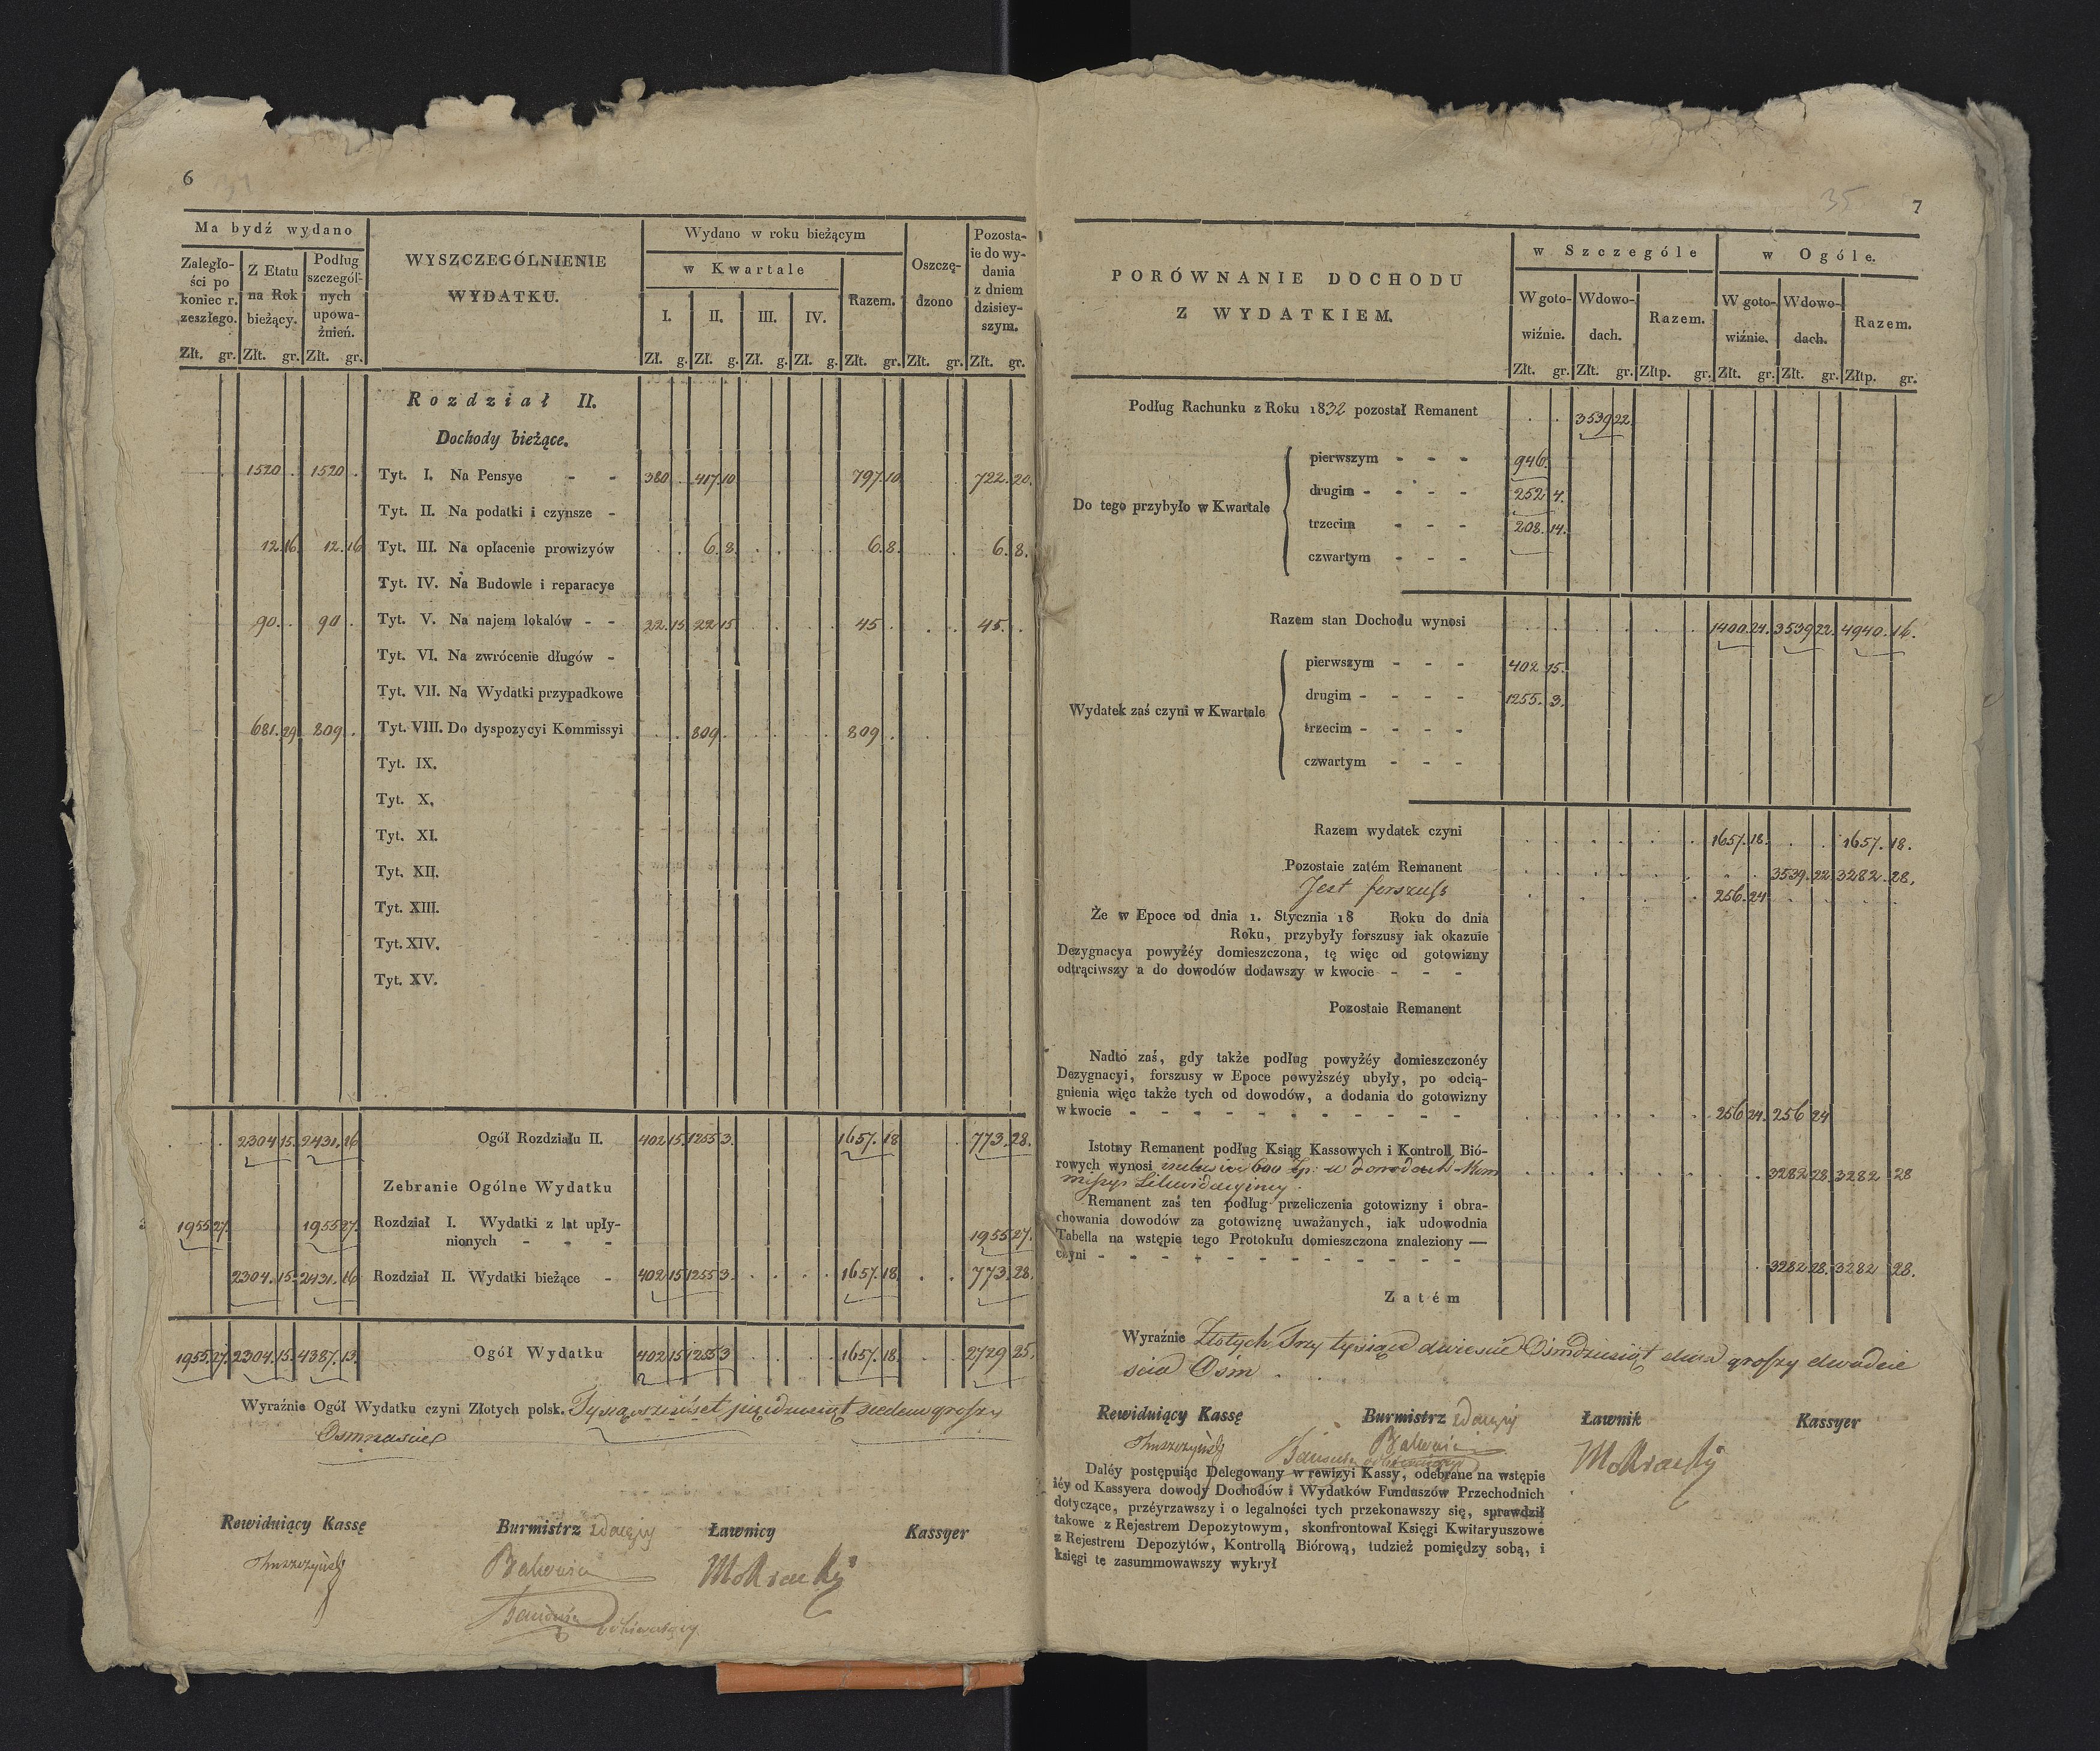 6 34
Ma bydź wydano
Zaległości po koniec r. zeszłego.
Z Etatu na Rok bieżący.
Podług szczególnych upoważnień.
WYSZCZEGÓLNIENIE
WYDATKU.
Wydano w roku bieżącym
w Kwartale
I. II. III. IV.
Razem.
Oszczędzono
Pozostaie do wydania z dniem dzisieyszym.
Złt. gr. Złt. gr. Złt. gr. Zł. g. Zł. g. Zł. g. Zł. g. Złt. gr. Złt. gr. Złt. gr.
Rozdział II.
Dochody bieżące.
1520 . 1520 . Tyt. I. Na Pensye - - 380 . 417 10 797. 10 722. 20.
Tyt. II. Na podatki i czynsze -
12. 16. 12. 16 Tyt. III. Na opłacenie prowizyów . . 6. 8. 6. 8. 6. 8.
Tyt. IV. Na Budowle i reparacye
90. . 90 . Tyt. V. Na najem lokalów - - 22. 15 22 15 45 . 45. .
Tyt. VI. Na zwrócenie długów -
Tyt. VII. Na Wydatki przypadkowe
681. 29 809 . Tyt. VIII. Do dyspozycyi Kommissyi . . 809. . 809 .
Tyt. IX.
Tyt. X.
Tyt. XI.
Tyt. XII.
Tyt. XIII.
Tyt. XIV.
Tyt. XV.
2304 15. 2431. 16 Ogół Rozdziału II. 402 15. 1255 3. 1657. 18 773. 28.
Zebranie Ogólne Wydatku
1955 27. 1955 27. Rozdział I. Wydatki z lat upły-
nionych - - - 1955 27.
2304. 15. 2431. 16 Rozdział II. Wydatki bieżące - 402 15 1255 3. 1657. 18. 773. 28.
1955. 27. 2304. 15. 4387. 13. Ogół Wydatku 402 15 1255 3 1657. 18. 2729 25.
Wyraźnie Ogół Wydatku czyni Złotych polsk. Tysiąc sześćset pięćdziesiąt siedem groszy
Osmnaście
Rewiduiący Kassę Burmistrz Ławnicy Kassyer
35 7
PORÓWNANIE DOCHODU
Z WYDATKIEM.
w Szczególe
w Ogóle.
W gotowiźnie. W dowodach. Razem. W gotowiźnie. W dowodach. Razem.
Złt. gr. Złt. gr. Złtp. gr. Złt. gr. Złt. gr. Złtp. gr.
Podług Rachunku z Roku 1832 pozostał Remanent . . 3539 22.
pierwszym - - - 946.
drugim - - - - 252 4.
Do tego przybyło w Kwartale
trzecim - - - 208. 14.
czwartym - - -
Razem stan Dochodu wynosi 1400. 24. 3539 22. 4940. 16.
pierwszym - - - 402 15.
drugim - - - - 1255. 3.
Wydatek zaś czyni w Kwartale
trzecim - - - -
czwartym - - -
Razem wydatek czyni 1657. 18. . . 1657. 18.
Pozostaie zatém Remanent . . 3539. 22 3282. 28.
Jest forszuss 256. 24.
Że w Epoce od dnia 1. Stycznia 18 Roku do dnia
Roku, przybyły forszusy iak okazuie
Dezygnacya powyżéy domieszczona, tę więc od gotowizny
odtrąciwszy a do dowodów dodawszy w kwocie - - -
Pozostaie Remanent
Nadto zaś, gdy także podług powyżéy domieszczonéy
Dezygnacyi, forszusy w Epoce powyższéy ubyły, po odcią-
gnienia więc także tych od dowodów, a dodania do gotowizny
w kwocie - - - - - - - - - - - 256 24. 256 24
Istotny Remanent podług Ksiąg Kassowych i Kontroll Bió-
rowych wynosi inclusive 600 Zp. w dowodach Kom 3282 28. 3282 28
missyi Likwidacyjney.
Remanent zaś ten podług przeliczenia gotowizny i obra-
chowania dowodów za gotowiznę uważanych, iak udowodnia
Tabella na wstępie tego Protokułu domieszczona znaleziony —
czyni - - - - - - - - - - - - 3282 28. 3282 28.
Zatém
Wyraźnie Złotych Trzy tysiące dwieście Osmdziesiąt dwa groszy dwadzie
scia Osm.
Rewiduiący Kassę Burmistrz Ławnik Kassyer
Daléy postępuiąc Delegowany w rewizyi Kassy, odebrane na wstępie
iéy od Kassyera dowody Dochodów i Wydatków Funduszów Przechodnich
dotyczące, przéyrzawszy i o legalności tych przekonawszy się, sprawdził
takowe z Rejestrem Depozytowym, skonfrontował Księgi Kwitaryuszowe
z Rejestrem Depozytów, Kontrollą Biórową, tudzież pomiędzy sobą, i
księgi te zasummowawszy wykrył